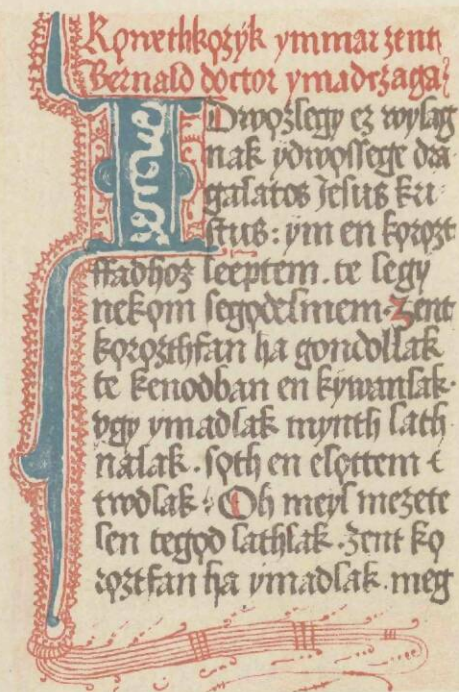 Kowethkozyk ymmar zent
Bernald doctor ymadczaga
IDwozlegy ez wylag
nak ydwossege dra
galatos Jesus kri
stus: ym en korozt
ffadhoz leeptem. te legy
nekom segodelmem. Zent
korozthfan ha gondollak
te kenodban en kywanlak.
vgy ymadlak mynth lath
nalak. soth en elottem t
twdlak: Oh meyl mezete
len tegod lathlak. Zent ko
roztfan ha ymadlak. meg